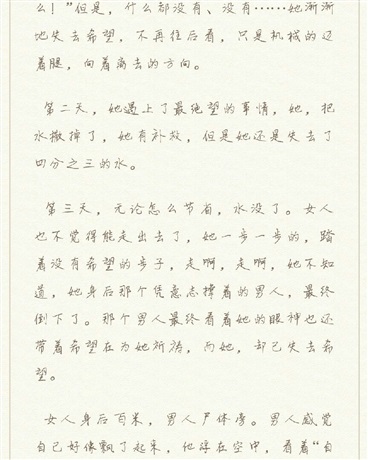 么！”但是，什么都没有、没有……她渐渐
地失去希望，不再往后看，只是机械的迈
着腿，向着离去的方向。
第二天，她遇上了最绝望的事情，她，把
水撒掉了，她有补救，但是她还是失去了
四分之三的水。
第三天，无论怎么节省，水没了。女人
也不觉得能走出去了，她一步一步的，踏
着没有希望的步子，走啊，走啊，她不知
道，她身后那个凭意志撑着的男人，最终
倒下了。那个男人最终看着她的眼神也还
带着希望在为她祈祷，而她，却已失去希
望。
女人身后百米，男人尸体旁。男人感觉
自己好像飘了起来，他浮在空中，看着“自